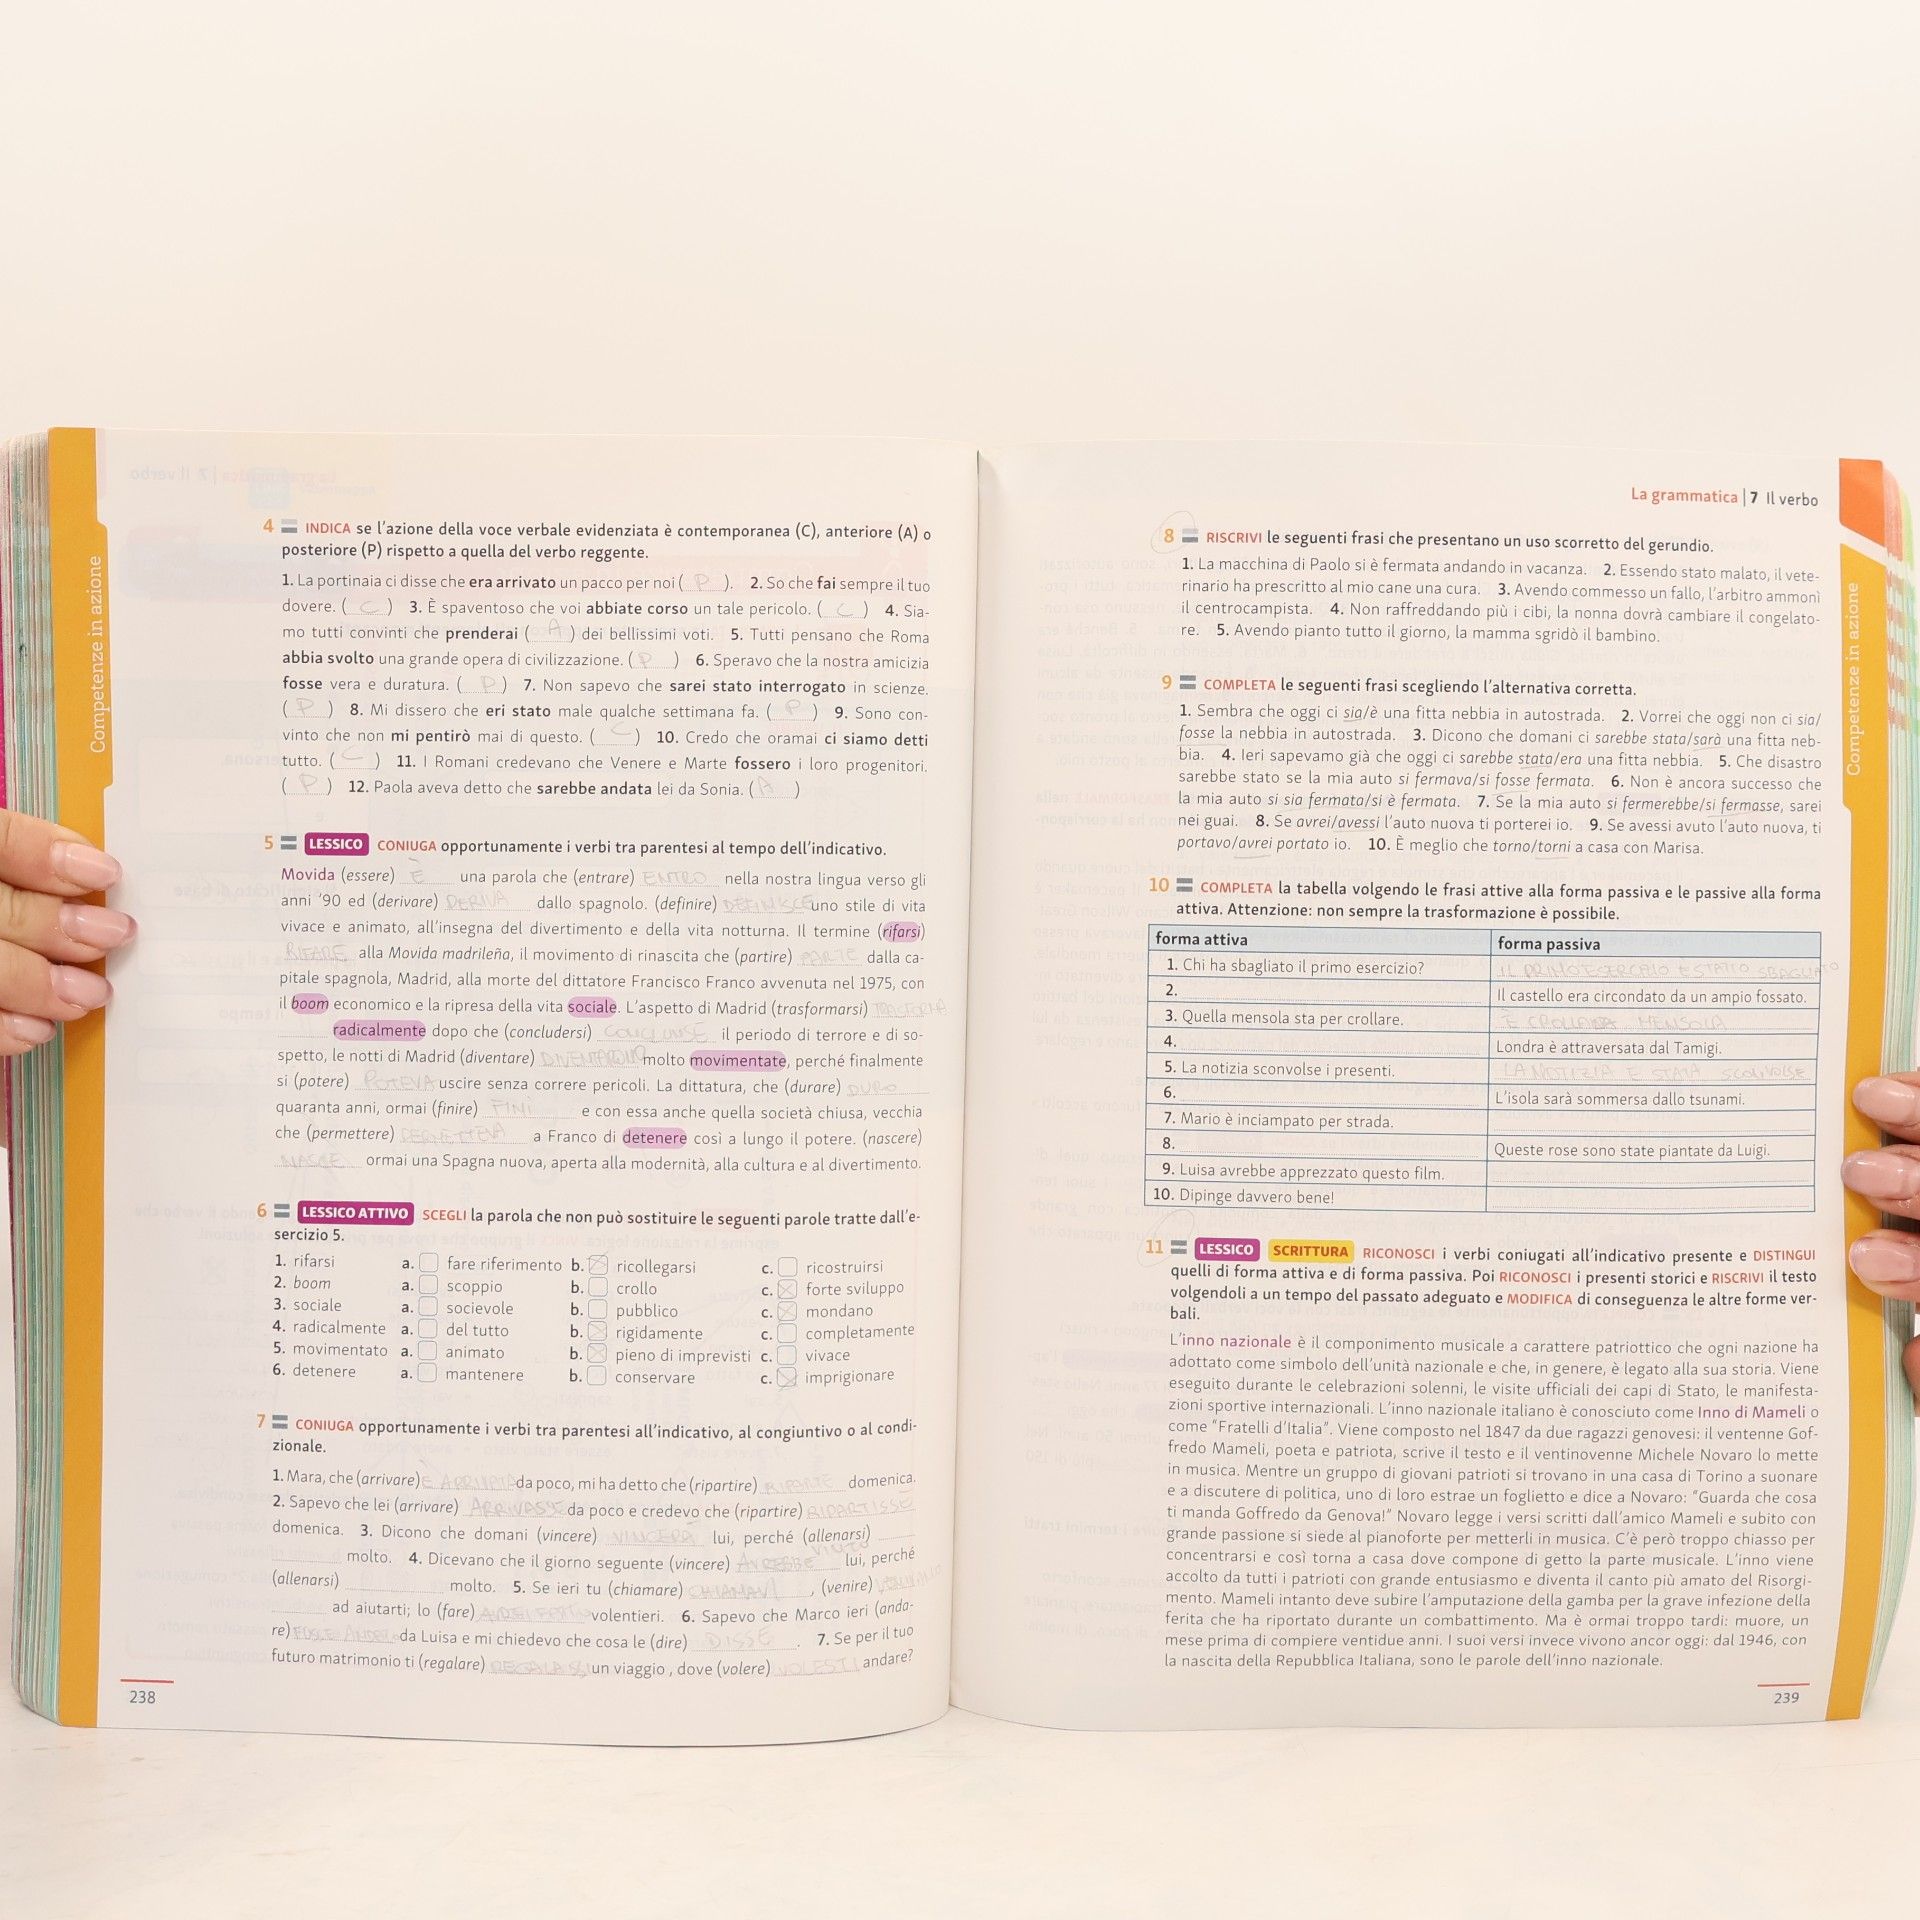 Competenze in azione
4 INDICA se l'azione della voce verbale evidenziata è contemporanea (C), anteriore (A) o
posteriore (P) rispetto a quella del verbo reggente.
1. La portinaia ci disse che era arrivato un pacco per noi ( P ). 2. So che fai sempre il tuo
dovere. ( C ) 3. È spaventoso che voi abbiate corso un tale pericolo. ( C ) 4. Sia-
mo tutti convinti che prenderai ( A ) dei bellissimi voti. 5. Tutti pensano che Roma
abbia svolto una grande opera di civilizzazione. ( P ) 6. Speravo che la nostra amicizia
fosse vera e duratura. ( P ) 7. Non sapevo che sarei stato interrogato in scienze.
( P ) 8. Mi dissero che eri stato male qualche settimana fa. ( P ) 9. Sono con-
vinto che non mi pentirò mai di questo. ( C ) 10. Credo che oramai ci siamo detti
tutto. ( C ) 11. I Romani credevano che Venere e Marte fossero i loro progenitori.
( P ) 12. Paola aveva detto che sarebbe andata lei da Sonia. ( A )
5 LESSICO CONIUGA opportunamente i verbi tra parentesi al tempo dell'indicativo.
Movida (essere) È una parola che (entrare) ENTRO nella nostra lingua verso gli
anni '90 ed (derivare) DERIVA dallo spagnolo. (definire) DEFINISCE uno stile di vita
vivace e animato, all'insegna del divertimento e della vita notturna. Il termine (rifarsi)
RIFARE alla Movida madrileña, il movimento di rinascita che (partire) PARTE dalla ca-
pitale spagnola, Madrid, alla morte del dittatore Francisco Franco avvenuta nel 1975, con
il boom economico e la ripresa della vita sociale. L'aspetto di Madrid (trasformarsi) TRASFORMA
radicalmente dopo che (concludersi) CONCLUSE il periodo di terrore e di so-
spetto, le notti di Madrid (diventare) DIVENTARONO molto movimentate, perché finalmente
si (potere) POTEVA uscire senza correre pericoli. La dittatura, che (durare) DURO
quaranta anni, ormai (finire) FINI e con essa anche quella società chiusa, vecchia
che (permettere) PERMETTEVA a Franco di detenere così a lungo il potere. (nascere)
NASCE ormai una Spagna nuova, aperta alla modernità, alla cultura e al divertimento.
6 LESSICO ATTIVO SCEGLI la parola che non può sostituire le seguenti parole tratte dall'e-
sercizio 5.
1. rifarsi a. fare riferimento b. ricollegarsi c. ricostruirsi
2. boom a. scoppio b. crollo c. forte sviluppo
3. sociale a. socievole b. pubblico c. mondano
4. radicalmente a. del tutto b. rigidamente c. completamente
5. movimentato a. animato b. pieno di imprevisti c. vivace
6. detenere a. mantenere b. conservare c. imprigionare
7 CONIUGA opportunamente i verbi tra parentesi all'indicativo, al congiuntivo o al condi-
zionale.
1. Mara, che (arrivare) È ARRIVATA da poco, mi ha detto che (ripartire) RIPARTE domenica.
2. Sapevo che lei (arrivare) ARRIVASSE da poco e credevo che (ripartire) RIPARTISSE
domenica. 3. Dicono che domani (vincere) VINCERÀ lui, perché (allenarsi)
molto. 4. Dicevano che il giorno seguente (vincere) AVREBBE VINTO lui, perché
(allenarsi) molto. 5. Se ieri tu (chiamare) CHIAMAVI , (venire)
ad aiutarti; lo (fare) volentieri. 6. Sapevo che Marco ieri (anda-
re) da Luisa e mi chiedevo che cosa le (dire) DISSE . 7. Se per il tuo
futuro matrimonio ti (regalare) REGALASSI un viaggio , dove (volere) VOLESTI andare?
238
La grammatica | 7 Il verbo
8 RISCRIVI le seguenti frasi che presentano un uso scorretto del gerundio.
1. La macchina di Paolo si è fermata andando in vacanza. 2. Essendo stato malato, il vete-
rinario ha prescritto al mio cane una cura. 3. Avendo commesso un fallo, l'arbitro ammonì
il centrocampista. 4. Non raffreddando più i cibi, la nonna dovrà cambiare il congelato-
re. 5. Avendo pianto tutto il giorno, la mamma sgridò il bambino.
9 COMPLETA le seguenti frasi scegliendo l'alternativa corretta.
1. Sembra che oggi ci sia/è una fitta nebbia in autostrada. 2. Vorrei che oggi non ci sia/
fosse la nebbia in autostrada. 3. Dicono che domani ci sarebbe stata/sarà una fitta neb-
bia. 4. Ieri sapevamo già che oggi ci sarebbe stata/era una fitta nebbia. 5. Che disastro
sarebbe stato se la mia auto si fermava/si fosse fermata. 6. Non è ancora successo che
la mia auto si sia fermata/si è fermata. 7. Se la mia auto si fermerebbe/si fermasse, sarei
nei guai. 8. Se avrei/avessi l'auto nuova ti porterei io. 9. Se avessi avuto l'auto nuova, ti
portavo/avrei portato io. 10. È meglio che torno/torni a casa con Marisa.
10 COMPLETA la tabella volgendo le frasi attive alla forma passiva e le passive alla forma
attiva. Attenzione: non sempre la trasformazione è possibile.
forma attiva forma passiva
1. Chi ha sbagliato il primo esercizio? IL PRIMO ESERCIZIO È STATO SBAGLIATO
2. Il castello era circondato da un ampio fossato.
3. Quella mensola sta per crollare. È CROLLATA MENSOLA
4. Londra è attraversata dal Tamigi.
5. La notizia sconvolse i presenti. LA NOTIZIA È STATA SCONVOLSE
6. L'isola sarà sommersa dallo tsunami.
7. Mario è inciampato per strada.
8. Queste rose sono state piantate da Luigi.
9. Luisa avrebbe apprezzato questo film.
10. Dipinge davvero bene!
11 LESSICO SCRITTURA RICONOSCI i verbi coniugati all'indicativo presente e DISTINGUI
quelli di forma attiva e di forma passiva. Poi RICONOSCI i presenti storici e RISCRIVI il testo
volgendoli a un tempo del passato adeguato e MODIFICA di conseguenza le altre forme ver-
bali.
L'inno nazionale è il componimento musicale a carattere patriottico che ogni nazione ha
adottato come simbolo dell'unità nazionale e che, in genere, è legato alla sua storia. Viene
eseguito durante le celebrazioni solenni, le visite ufficiali dei capi di Stato, le manifesta-
zioni sportive internazionali. L'inno nazionale italiano è conosciuto come Inno di Mameli o
come "Fratelli d'Italia". Viene composto nel 1847 da due ragazzi genovesi: il ventenne Gof-
fredo Mameli, poeta e patriota, scrive il testo e il ventinovenne Michele Novaro lo mette
in musica. Mentre un gruppo di giovani patrioti si trovano in una casa di Torino a suonare
e a discutere di politica, uno di loro estrae un foglietto e dice a Novaro: "Guarda che cosa
ti manda Goffredo da Genova!" Novaro legge i versi scritti dall'amico Mameli e subito con
grande passione si siede al pianoforte per metterli in musica. C'è però troppo chiasso per
concentrarsi e così torna a casa dove compone di getto la parte musicale. L'inno viene
accolto da tutti i patrioti con grande entusiasmo e diventa il canto più amato del Risorgi-
mento. Mameli intanto deve subire l'amputazione della gamba per la grave infezione della
ferita che ha riportato durante un combattimento. Ma è ormai troppo tardi: muore, un
mese prima di compiere ventidue anni. I suoi versi invece vivono ancor oggi: dal 1946, con
la nascita della Repubblica Italiana, sono le parole dell'inno nazionale.
239
Competenze in azione